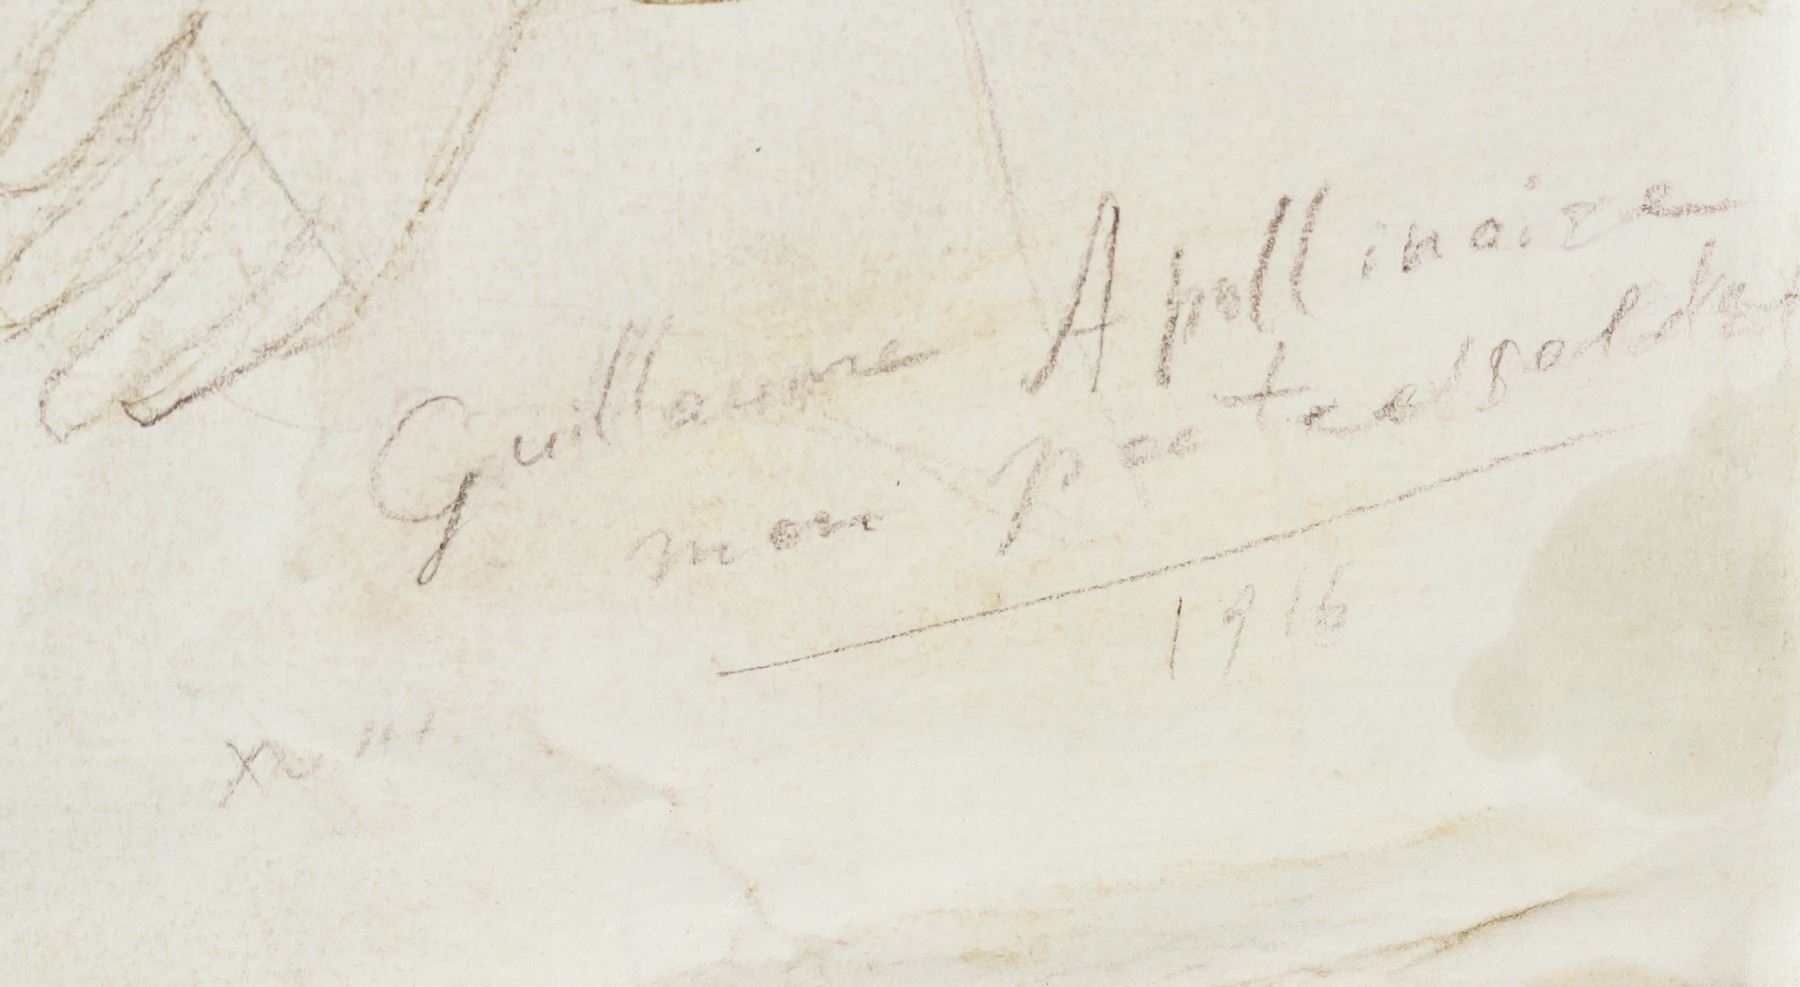 Guillaume Apollinaire
mon poete soldat
1916